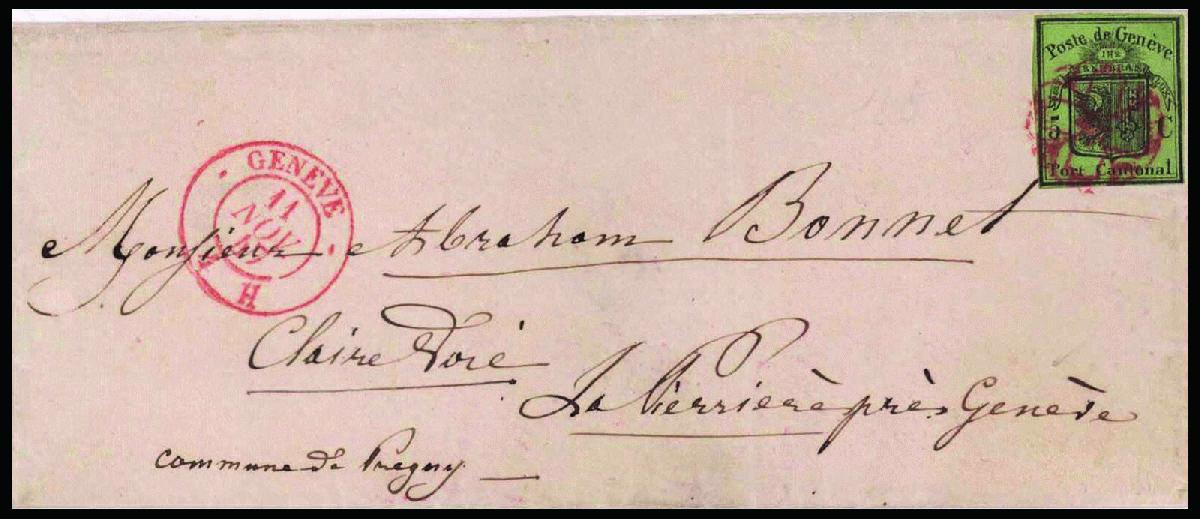 Poste de Genève
IHS
5 C
Port Cantonal
GENEVE
11
NOV
H
Monsieur Abraham Bonnet
Claire Voie
La Perrière près Genève
commune de Pregny